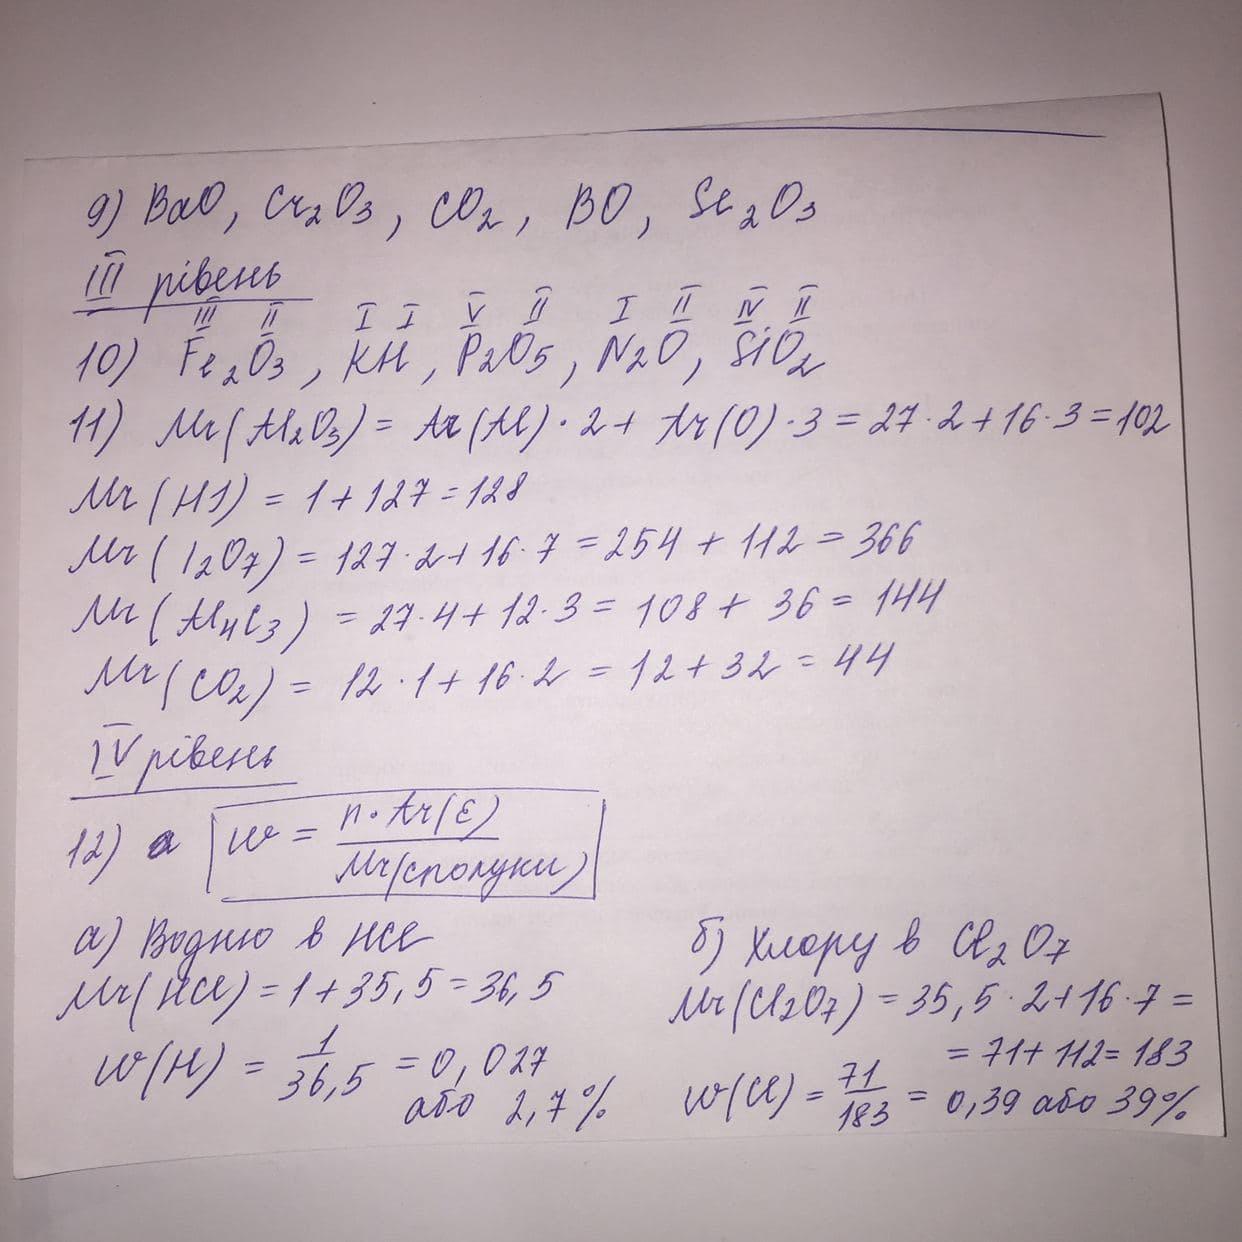 9) BaO, Cr₂O₃, CO₂, BO, Se₂O₃
III рівень
III II I I V II I II IV II
10) Fe₂O₃, KH, P₂O₅, N₂O, SiO₂
11) Mr(Al₂O₃) = Ar(Al)·2 + Ar(O)·3 = 27·2+16·3=102
Mr(HI) = 1+127=128
Mr(I₂O₇) = 127·2+16·7 = 254 + 112 = 366
Mr(Al₄C₃) = 27·4+12·3 = 108 + 36 = 144
Mr(CO₂) = 12·1+16·2 = 12+32 = 44
IV рівень
12) a w = n·Ar(E) / Mr(сполуки)
а) Водню в HCl
Mr(HCl)=1+35,5=36,5
w(H) = 1/36,5 = 0,027
або 2,7%
б) Хлору в Cl₂O₇
Mr(Cl₂O₇) = 35,5·2+16·7 =
= 71+112=183
w(Cl) = 71/183 = 0,39 або 39%